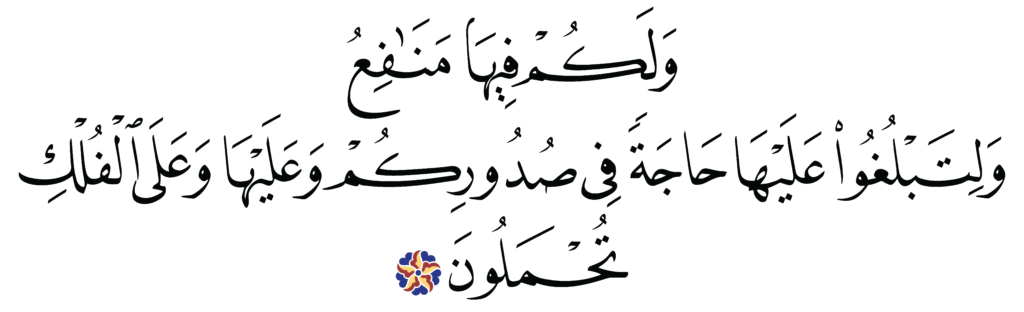 وَلَكُمْ فِيهَا مَنَـٰفِعُ
وَلِتَبْلُغُوا۟ عَلَيْهَا حَاجَةً فِى صُدُورِكُمْ وَعَلَيْهَا وَعَلَى ٱلْفُلْكِ
تُحْمَلُونَ